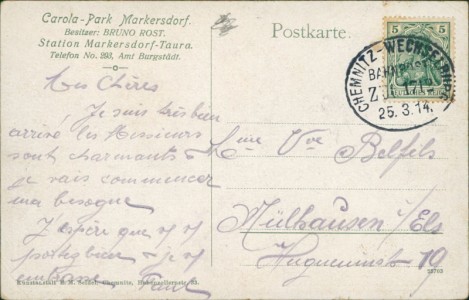 Carola-Park Markersdorf.
Besitzer: BRUNO ROST.
Station Markersdorf-Taura.
Telefon No. 293, Amt Burgstädt.
Postkarte.
5 5
CHEMNITZ-WECHSELBURG
BAHNPOST
25.3.14.
Mes Chères
Je suis très bien
arrivé les Messieurs
sont charmants &
je vais commencer
ma besogne
J'espère que
je v
embrasse Paul
Mme Vve Belfels
Mülhausen i/Els
Hugueninstr 19
Hohenzollernstr.